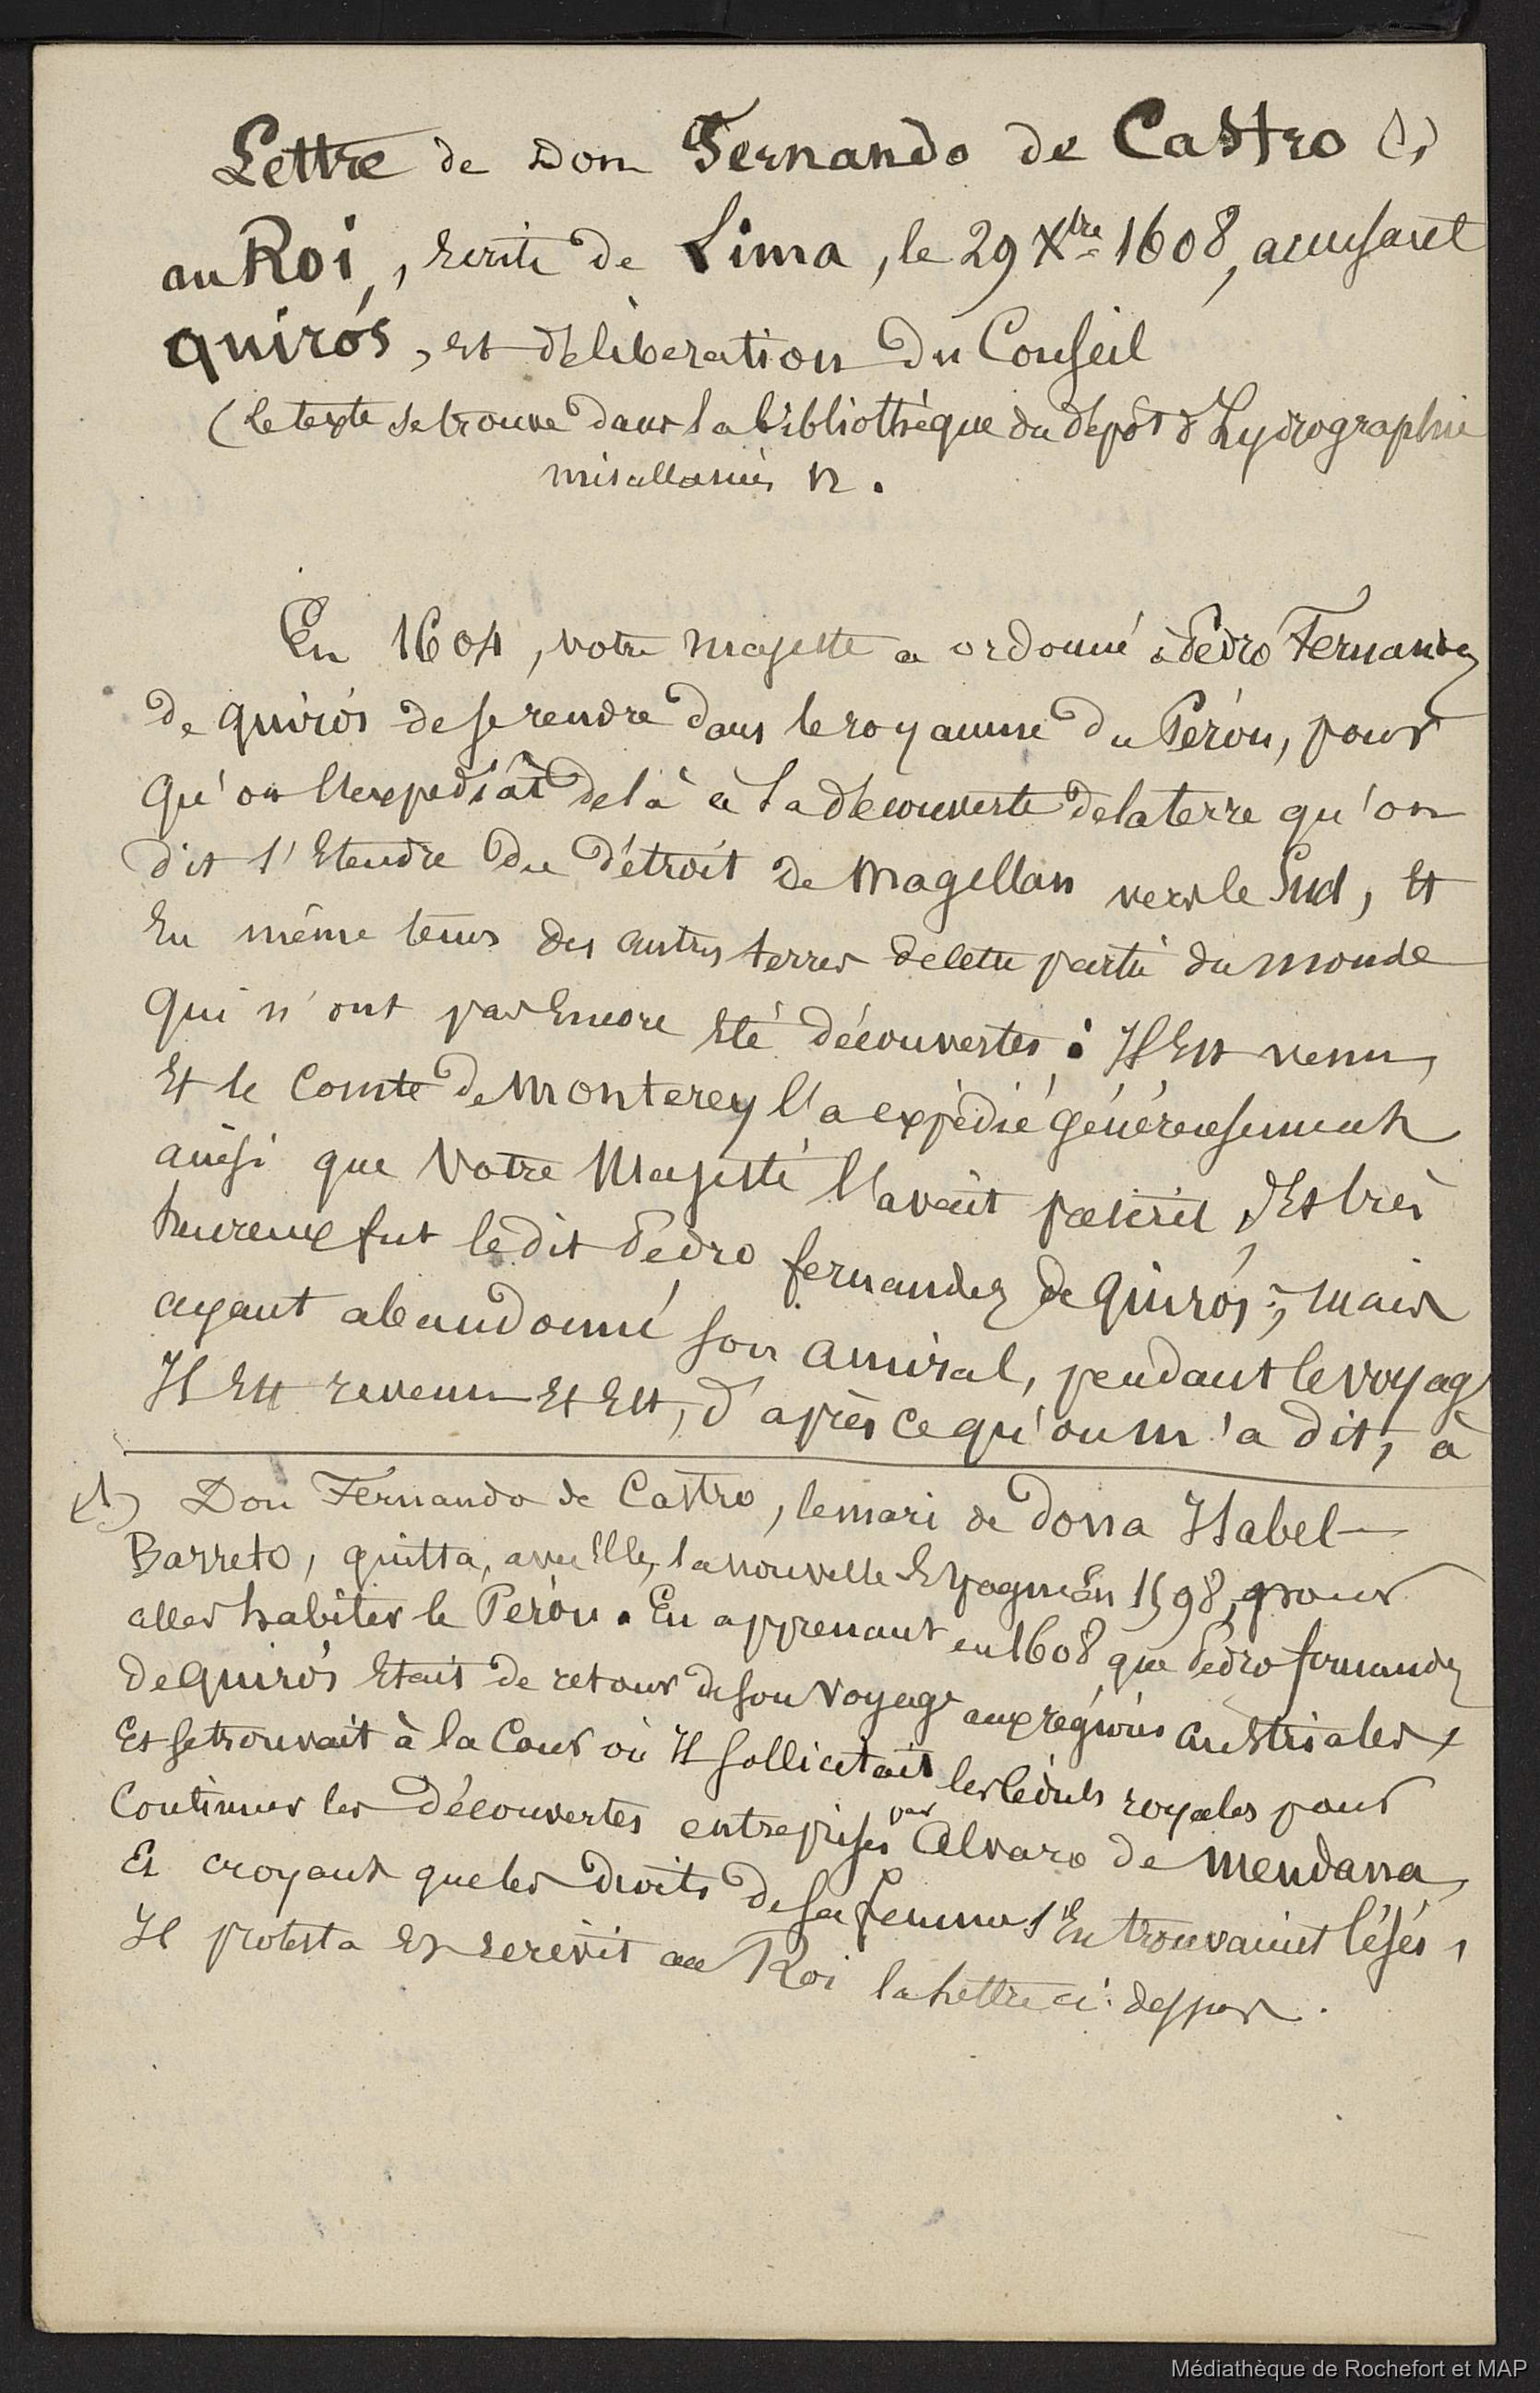 Lettre de Don Fernando de Castro (1)
au Roi, écrite de Lima, le 29 Xbre 1608, accusant
Quirós, et délibération du Conseil
(le texte se trouve dans la bibliothèque du dépôt d'hydrographie
miscellanies n.
En 1604, votre majesté a ordonné à Pedro Fernandez
de Quirós de se rendre dans le royaume du Pérou, pour
qu'on l'expédiât delà à la découverte de la terre qu'on
dit s'étendre du détroit de Magellan vers le Sud, et
en même tems des autres terres de cette partie du monde
qui n'ont pas encore été découvertes : Il est venu,
et le Comte de Monterey l'a expédié généreusement
ainsi que Votre Majesté l'avait prescrit, et très
heureux fut le dit Pedro fernandez de Quirós ; mais
ayant abandonné son amiral, pendant le voyage
Il est revenu et est, d'après ce qu'on m'a dit, à
(1) Don Fernando de Castro, le mari de dona Isabel
Barreto, quitta, avec Elle, la nouvelle Espagne en 1598, pour
aller habiter le Pérou. En apprenant en 1608 que Pedro fernandez
de Quirós était de retour de son voyage aux régions australes
et se trouvait à la Cour où Il sollicitait les cédules royales pour
continuer les découvertes entreprises par Alvaro de Mendana,
Et croyant que les droits de sa femme s'en trouvaient lésés,
Il protesta et écrivit au Roi la lettre ci-dessus.
Médiathèque de Rochefort et MAP